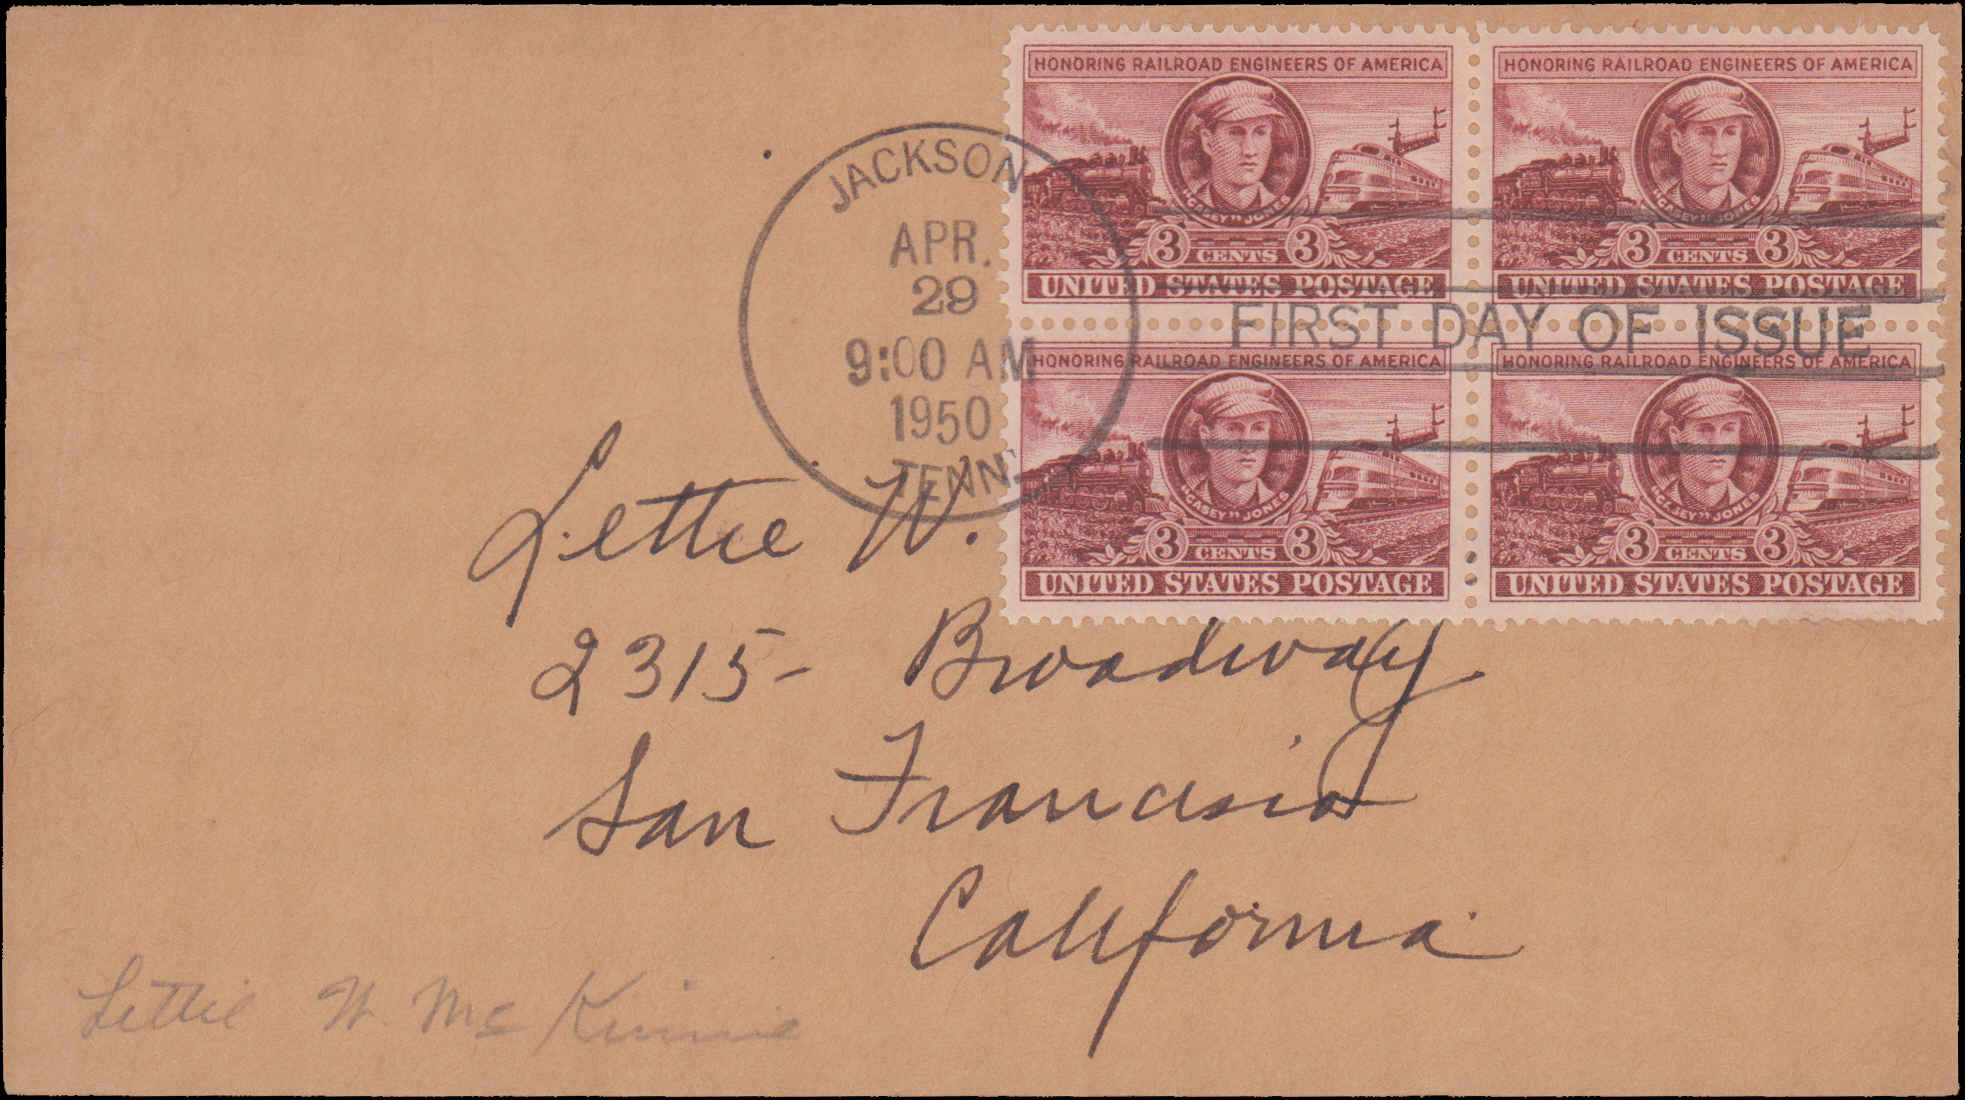 HONORING RAILROAD ENGINEERS OF AMERICA
"CASEY" JONES
3 CENTS 3
UNITED STATES POSTAGE
HONORING RAILROAD ENGINEERS OF AMERICA
"CASEY" JONES
3 CENTS 3
UNITED STATES POSTAGE
JACKSON
APR.
29
9:00 AM
1950
TENN.
FIRST DAY OF ISSUE
HONORING RAILROAD ENGINEERS OF AMERICA
"CASEY" JONES
3 CENTS 3
UNITED STATES POSTAGE
HONORING RAILROAD ENGINEERS OF AMERICA
"CASEY" JONES
3 CENTS 3
UNITED STATES POSTAGE
Lettie W.
2315- Broadway
San Francisco
California
Lettie W. McKinnie